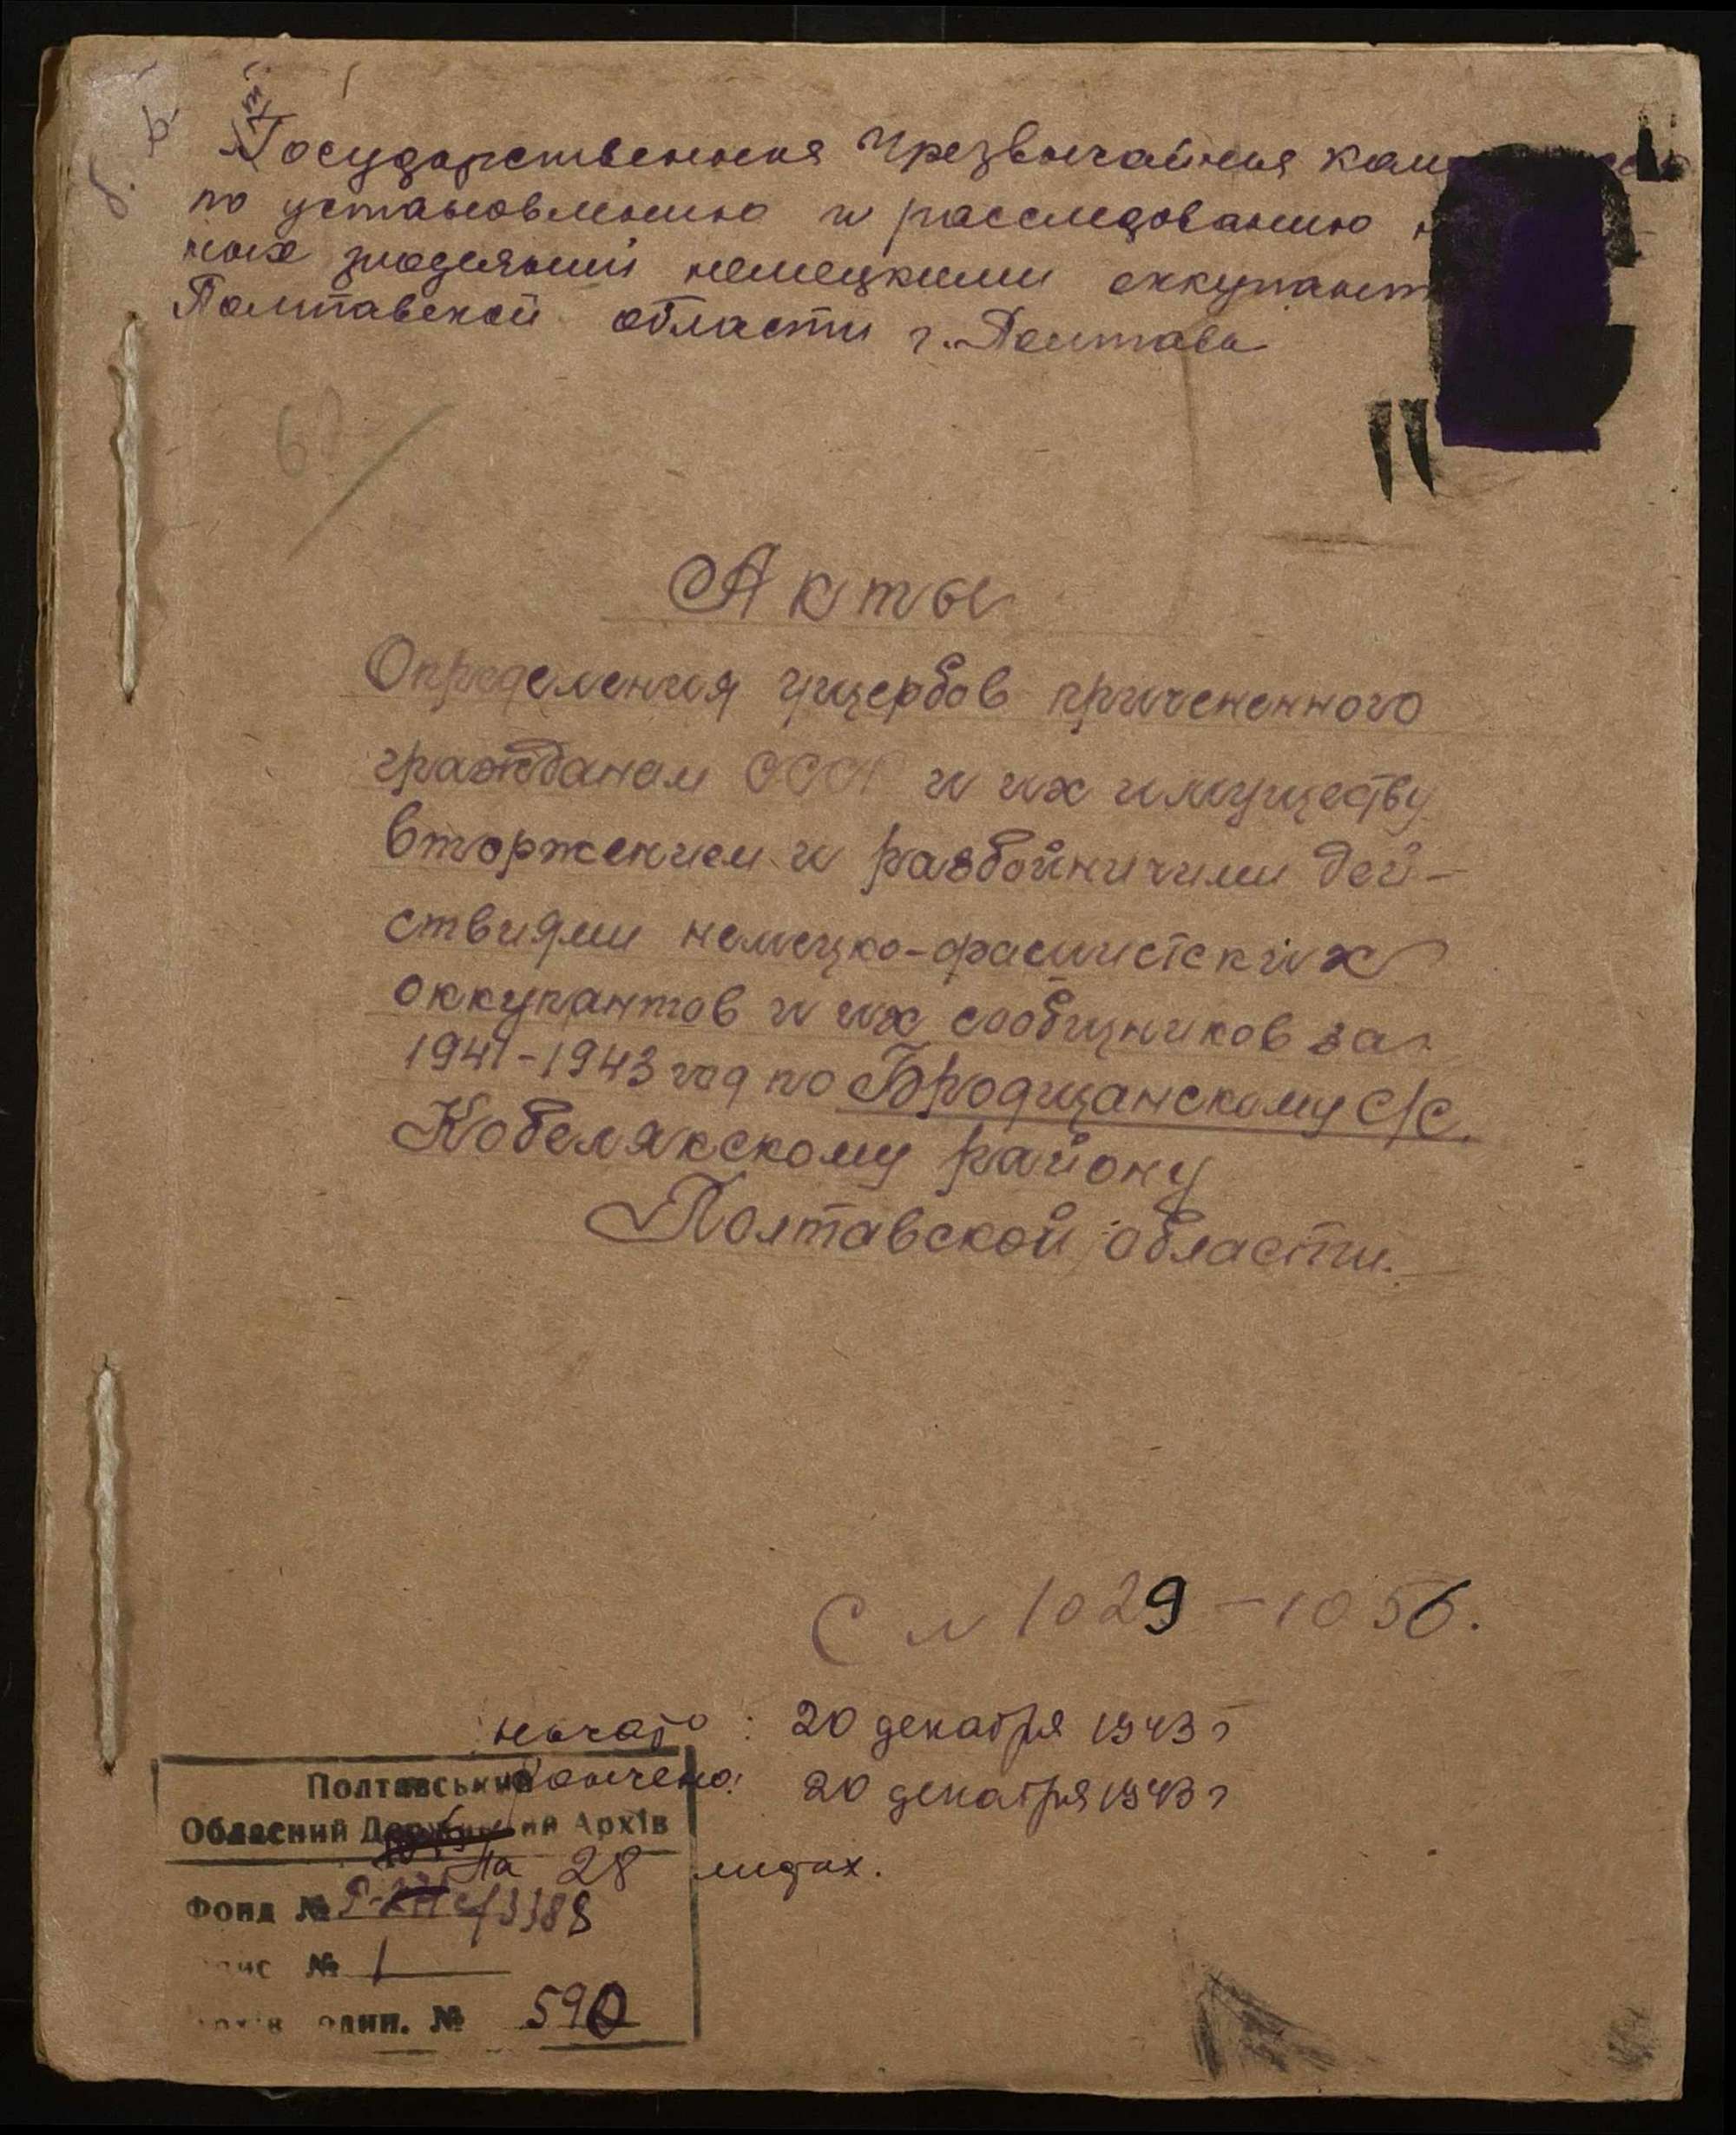 Государственная Чрезвычайная
по установлению и расследованию
ных злодеяний немецкими оккупант
Полтавской области г. Полтава
Акты
Определения ущербов приченемного
гражданам СССР и их имуществу
вторжением и разбойничими дей-
ствиями немецко-фашистских
оккупантов и их сообщников за
1941-1943 год по Бродщанскому с/с.
Кобелякскому району
Полтавской области.
С № 1029 - 1056.
начато: 20 декабря 1943 г
кончено: 20 декабря 1943 г
Полтавський
Обласний Державний Архів
на 28 листах.
Фонд № Р-3388
опис № 1
архів. один. № 590